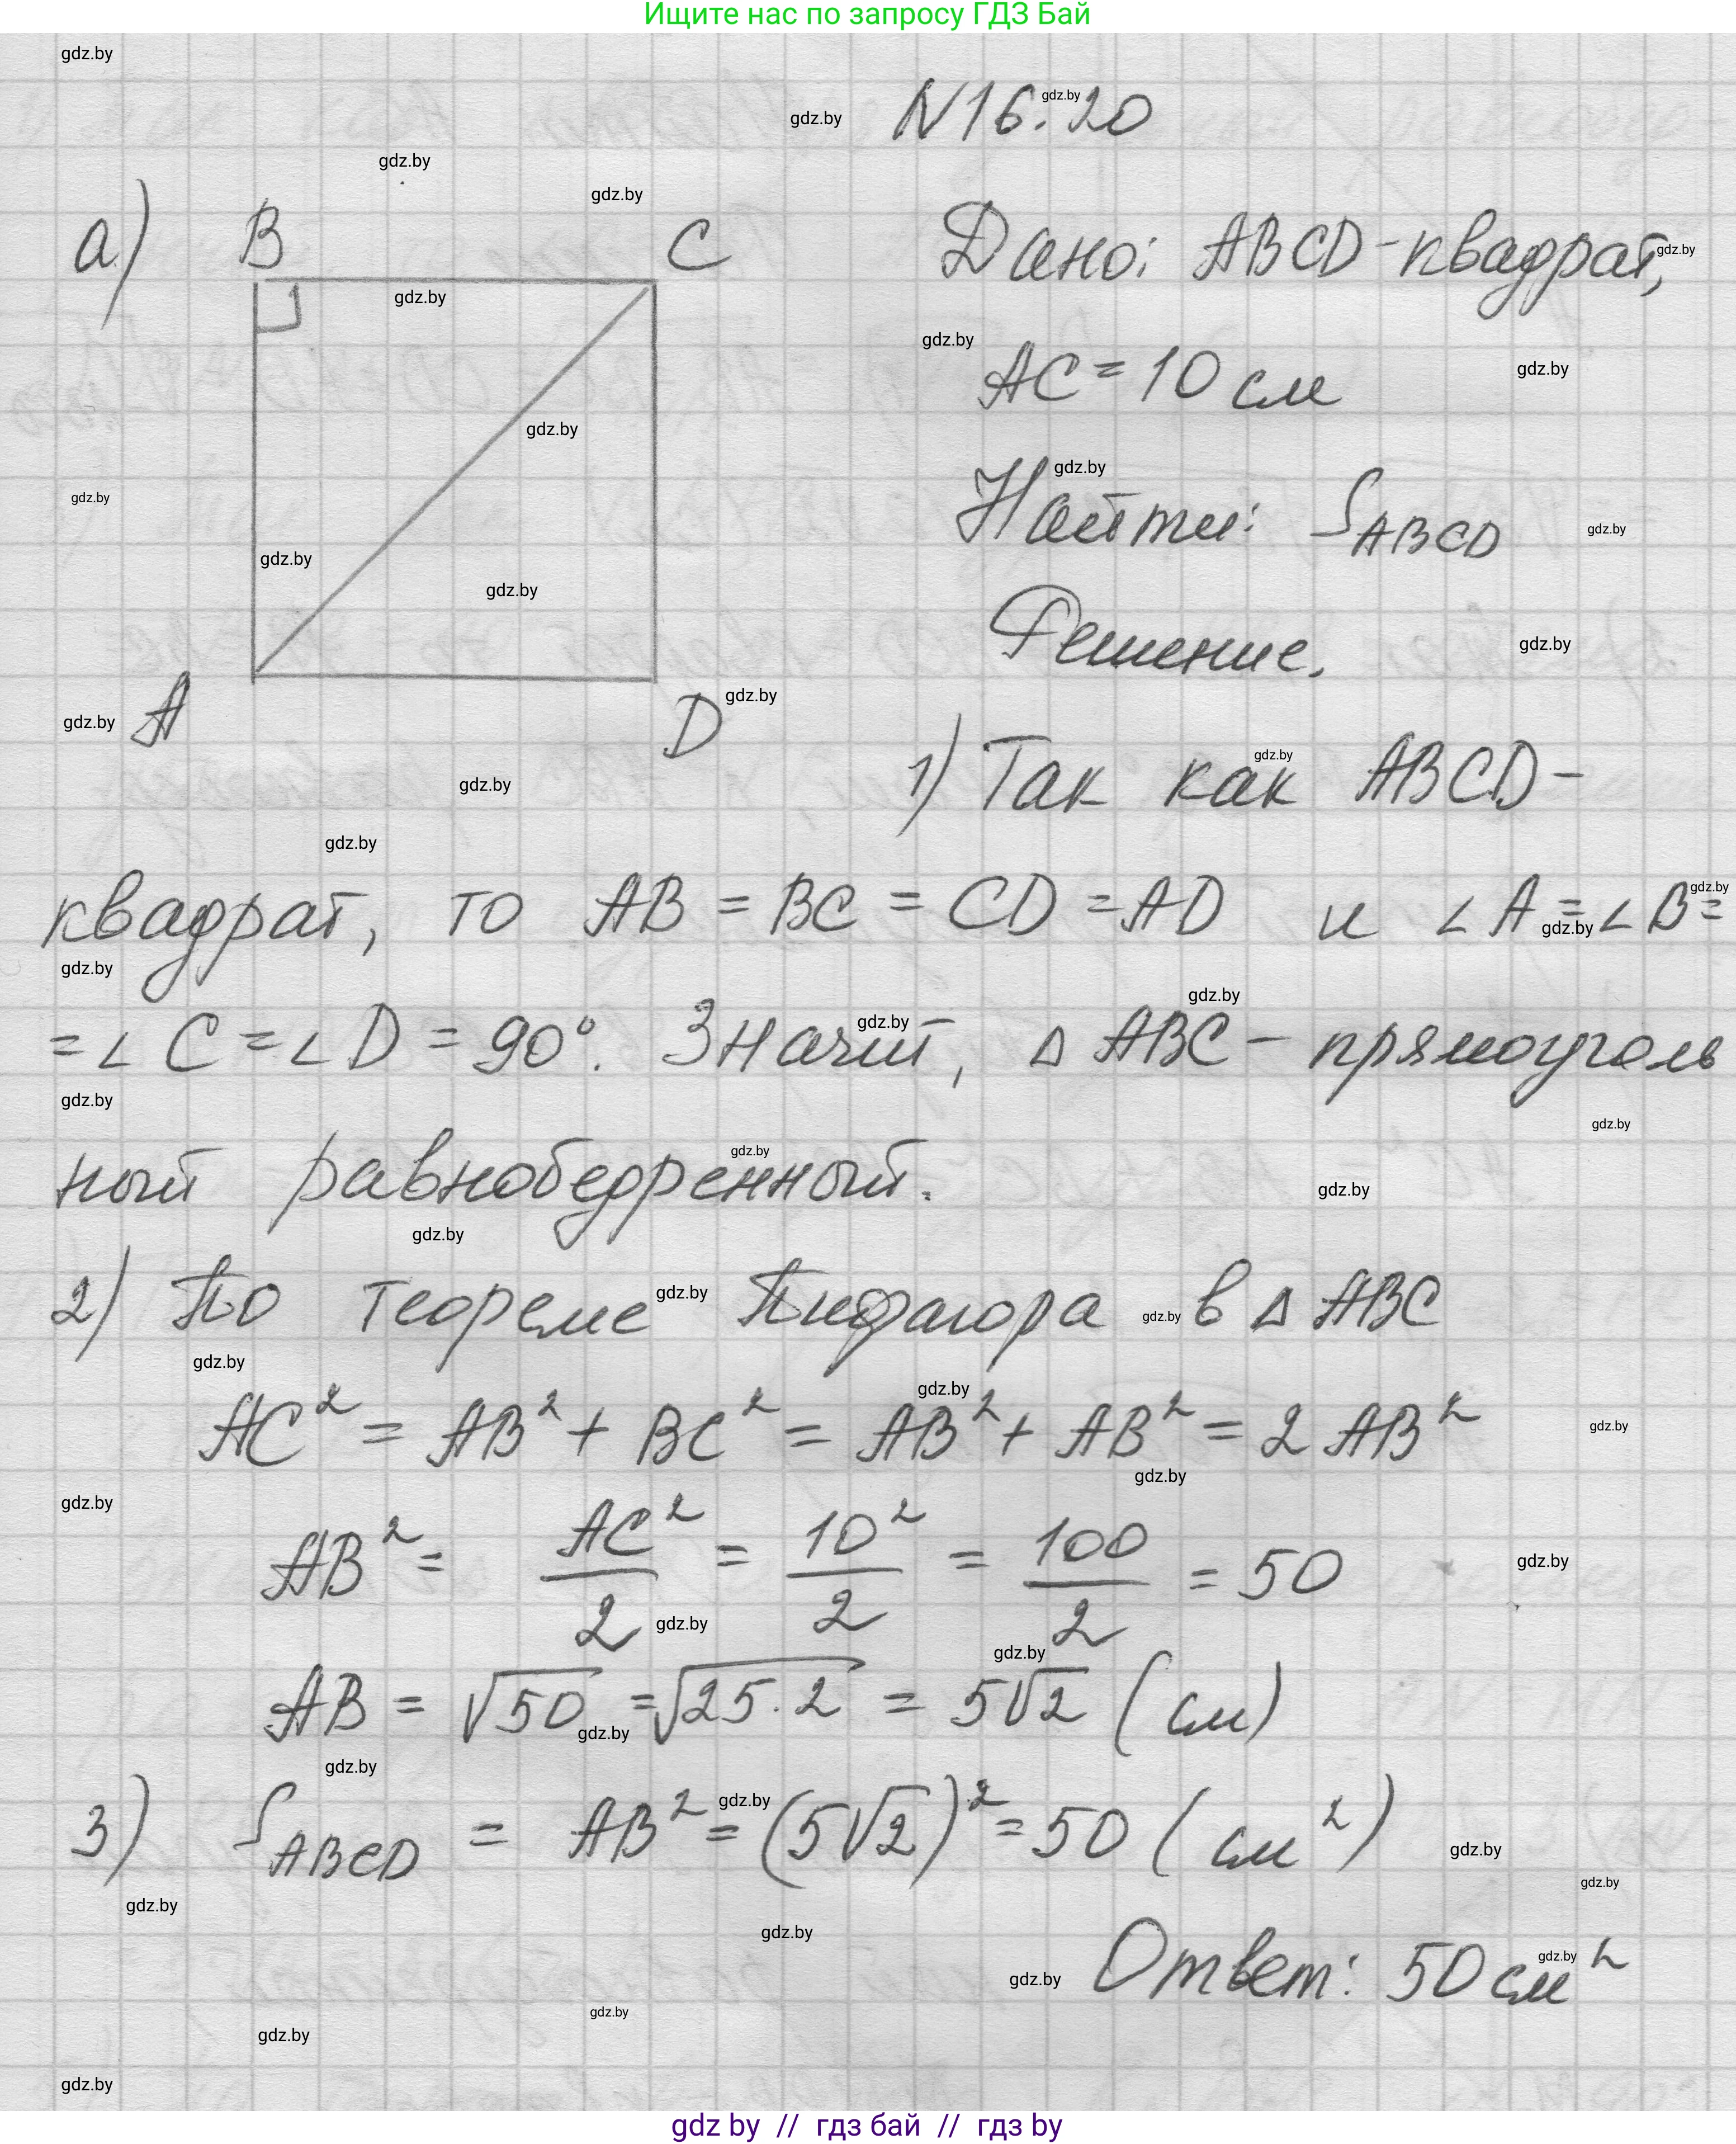 Ищите нас по запросу ГДЗ Бай
N16.20
а) B C
Дано: ABCD-квадрат,
AC = 10 см
Найти: S ABCD
Решение.
A D
1) Так как ABCD-
квадрат, то AB = BC = CD = AD и ∠A = ∠B =
= ∠C = ∠D = 90°. Значит, △ABC – прямоуголь
ный равнобедренный.
2) По теореме Пифагора в △ABC
AC² = AB² + BC² = AB² + AB² = 2AB²
AB² = AC²/2 = 10²/2 = 100/2 = 50
AB = √50 = √25·2 = 5√2 (см)
3) S ABCD = AB² = (5√2)² = 50 (см²)
Ответ: 50 см²
gdz by // гдз бай // гдз by